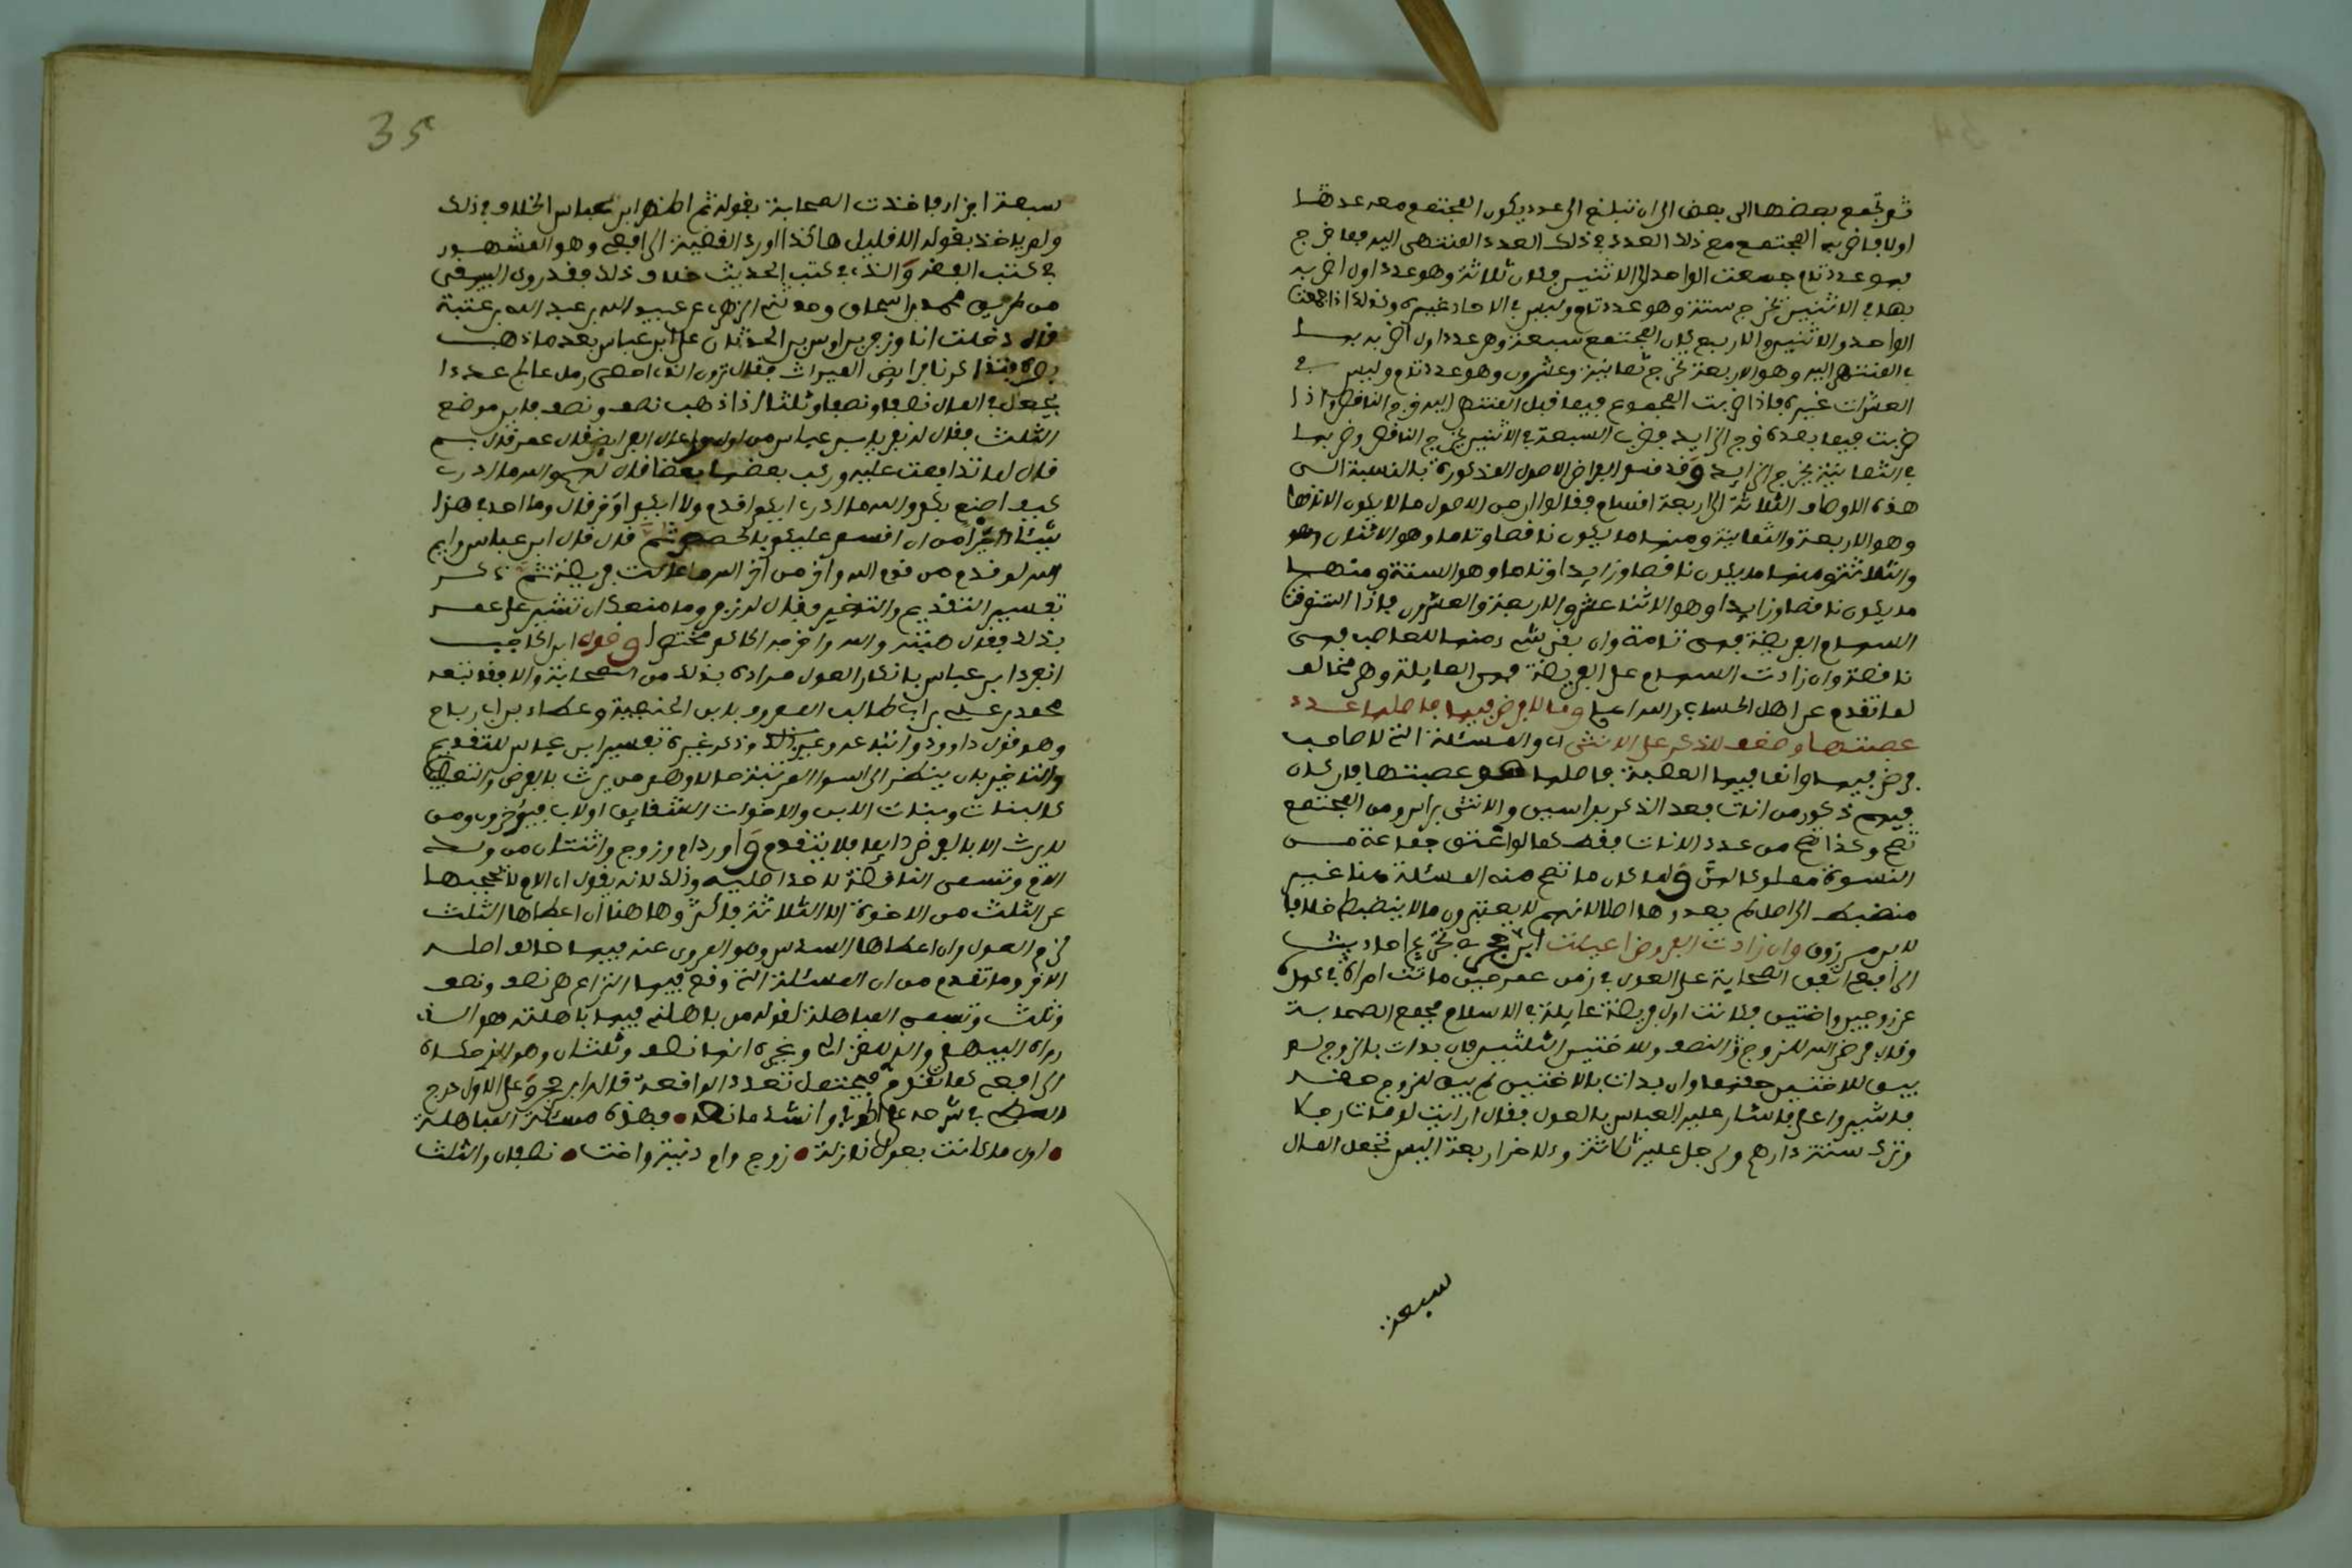 ثم تجمع بعضها الى بعض الى ان تبلغ الى عدد يكون المجتمع معه عددا
اولا فاضرب المجتمع مع ذلك العدد في ذلك العدد المنتهى اليه فما خرج
فهو عدد تام جمعت الواحد الى الاثنين فكان ثلاثة وهو عدد اول اضربه
بهما في الاثنين تخرج ستة وهو عدد تام وليس في الاحاد غيره وكذلك اذا جمعت
الواحد والاثنين والاربع كان المجتمع سبعة وهو عدد اول اضربه
في المنتهى اليه وهو الاربعة تخرج ثمانية وعشرون وهو عدد تام وليس في
العشرات غيره فاذا ضربت المجموع فيما قبل المنتهى اليه خرج الناقص واذا
ضربت فيما بعده خرج الزايد فضرب السبعة في الاثنين يخرج الناقص وضربها
في الثمانية يخرج الزايد وقد قسم الفراض الاصول المذكورة بالنسبة الى
هذه الاوصاف الثلاثة الى اربعة اقسام فقالوا ان من الاصول ما لا يكون الا ناقصا
وهو الاربعة والثمانية ومنها ما يكون ناقصا وتاما وهو الاثنان
والثلاثة ومنها ما يكون ناقصا وزايدا وتاما وهو الستة ومنها
ما يكون ناقصا وزايدا وهو الاثنا عشر والاربعة والعشرون فاذا استوفت
السهام الفريضة فهي تامة وان بقي شيء منها للعاصب فهي
ناقصة وان زادت السهام على الفريضة فهي العايلة وهو مخالف
لما تقدم عن اهل الحساب والله اعلم وما لا فرض فيها فاصلها عدد
عصبتها وضعف للذكر على الانثى اي والمسئلة التي لا صاحب
فرض فيها وانما فيها العصبة فاصلها هو عصبتها فان كان
فيهم ذكور من اناث فعد الذكر براسين والانثى براس ومن المجتمع
تصح وكذا تصح من عدد الاناث فقط كما لو اعتق جماعة من
النسوة مملوكا لهن ولما كان ما تصح منه المسئلة هنا غير
منضبط الى اصل لم يعدوها اصلا لانهم لا يعتبرون ما لا ينضبط خلافا
لابن مرزوق وان زادت الفروض اعيلت ابن حجر في تخريج احاديث
الرافعي اتفق الصحابة على العول في زمن عمر حين ماتت امراة في عهده
عن زوج واختين فكانت اول فريضة عايلة في الاسلام فجمع الصحابة
وقال فرض الله للزوج النصف وللاختين الثلثين فان بدات بالزوج لم
يبق للاختين حقهما وان بدات بالاختين لم يبق للزوج حقه
فاشيروا علي فاشار عليه العباس بالعول فقال ارايت لو مات رجل
وترك ستة دراهم ولرجل عليه ثلاثة ولاخر اربعة اليس تجعل المال
سبعة
35
سبعة اجزاء فاخذت الصحابة بقوله ثم اظهر ابن عباس الخلاف في ذلك
ولم ياخذ بقوله الا قليل هاكذا اورد القضية الرافعي وهو المشهور
في كتب الفقه والذي في كتب الحديث خلاف ذلك فقد روى البيهقي
من طريق محمد بن اسحاق وحدثني الزهري عن عبيد الله بن عبد الله بن عتبة
قال دخلت انا وزفر بن اوس بن الحدثان على ابن عباس بعد ما ذهب
بصره فتذاكرنا فرايض الميراث فقال ترون الذي احصى رمل عالج عددا
يجعل في المال نصفا ونصفا وثلثا اذا ذهب نصف ونصف فاين موضع
الثلث فقال له زفر يا ابن عباس من اول من اعال الفرايض قال عمر قال لم
قال لما تدافعت عليه وركب بعضها بعضا قال لهم والله ما ادري
كيف اصنع بكم والله ما ادري ايكم اقدم ولا ايكم اؤخر قال وما اجد في هذا
شيئا خيرا من ان اقسم عليكم بالحصص ثم قال قال ابن عباس وايم
الله لو قدم من قدم الله واخر من اخر الله ما عالت فريضة ثم ذكر
تفسير التقديم والتاخير فقال له زفر وما منعك ان تشير على عمر
بذلك فقال هيبته والله واخرجه الحاكم مختصرا وقول ابن الحاجب
انفرد ابن عباس بانكار العول مراده بذلك من الصحابة والا فقد تبعه
محمد بن علي بن ابي طالب المعروف بابن الحنفية وعطاء بن ابي رباح
وهو قول داوود واتباعه وغير ذلك وذكر غيره تفسير ابن عباس للتقديم
والتاخير بان ينظر الى اسوا المرتبة حالا وهو من يرث بالفرض والتعصيب
كالبنات وبنات الابن والاخوات الشقايق او لاب فيؤخرون ومن
لا يرث الا بالفرض دايما فلا يتقدم واورد ام وزوج واثنتان من ولد
الام وتسمى الناقضة لاحد اصليه وذلك لانه يقول ان الام لا يحجبها
عن الثلث من الاخوة الا الثلاثة فاكثر وها هنا ان اعطاها الثلث
لزم العول وان اعطاها السدس وهو المروي عنه فيها خالف اصله
الاخر وما تقدم من ان المسئلة التي وقع فيها النزاع هو نصف ونصف
وثلث وتسمى المباهلة لقوله من باهلني فيها باهلته هو الذي
رواه البيهقي والذي للغزالي وغيره انها نصف وثلثان وهو الذي حكاه
الرافعي كما تقدم فيحتمل تعدد الواقعة قاله ابن حجر وعلى الاول درج
في شرحه على الحوفي وانشد ما نصه • فهذه مسئلة المباهلة
• اول ما كانت بعول نازلة • زوج وام دنية واخت • نصفان والثلث